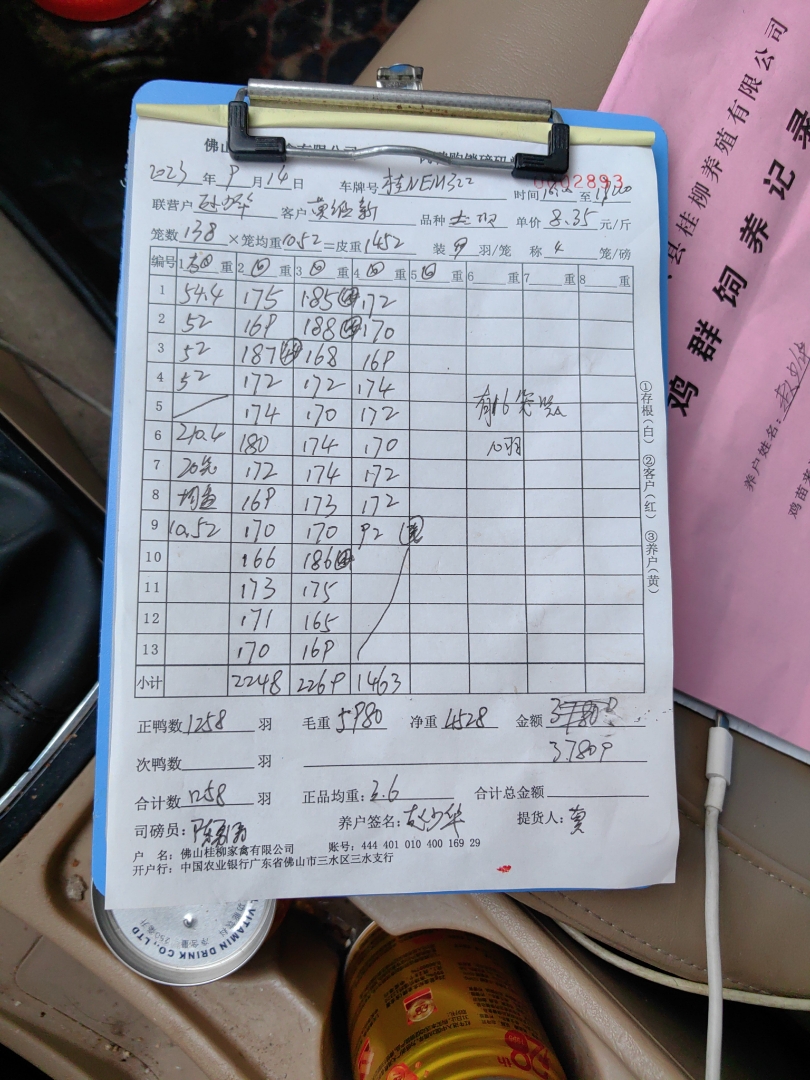 佛山
购销磅码单
0002893
2023 年 9 月 14 日 车牌号 桂NEM322 时间 至
联营户 客户 黄 新 品种 单价 8.35 元/斤
笼数 138 ×笼均重 10.52 =皮重 1452 装 9 羽/笼 称 4 笼/磅
编号 1 重 2 重 3 重 4 重 5 重 6 重 7 重 8 重
1 54.4 175 185 172
2 52 169 188 170
3 52 187 168 169
4 52 172 172 174
5 174 170 172
6 210.4 180 174 170
7 20笼 172 174 172
8 均重 169 173 172
9 10.52 170 170 92
10 166 186
11 173 175
12 171 165
13 170 169
小计 2248 2269 1463
有16笼
10羽
①存根(白) ②客户(红) ③养户(黄)
正鸭数 1258 羽 毛重 5980 净重 4528 金额
次鸭数 羽 37809
合计数 1258 羽 正品均重: 3.6 合计总金额
司磅员: 陈 养户签名: 华 提货人: 黄
户 名: 佛山桂柳家禽有限公司 账号: 444 401 010 400 169 29
开户行: 中国农业银行广东省佛山市三水区三水支行
县桂柳养殖有限公司
鸡群饲养记录
养户姓名:
鸡苗来
VITAMIN DRINK CO.,LTD
净含量 250毫升